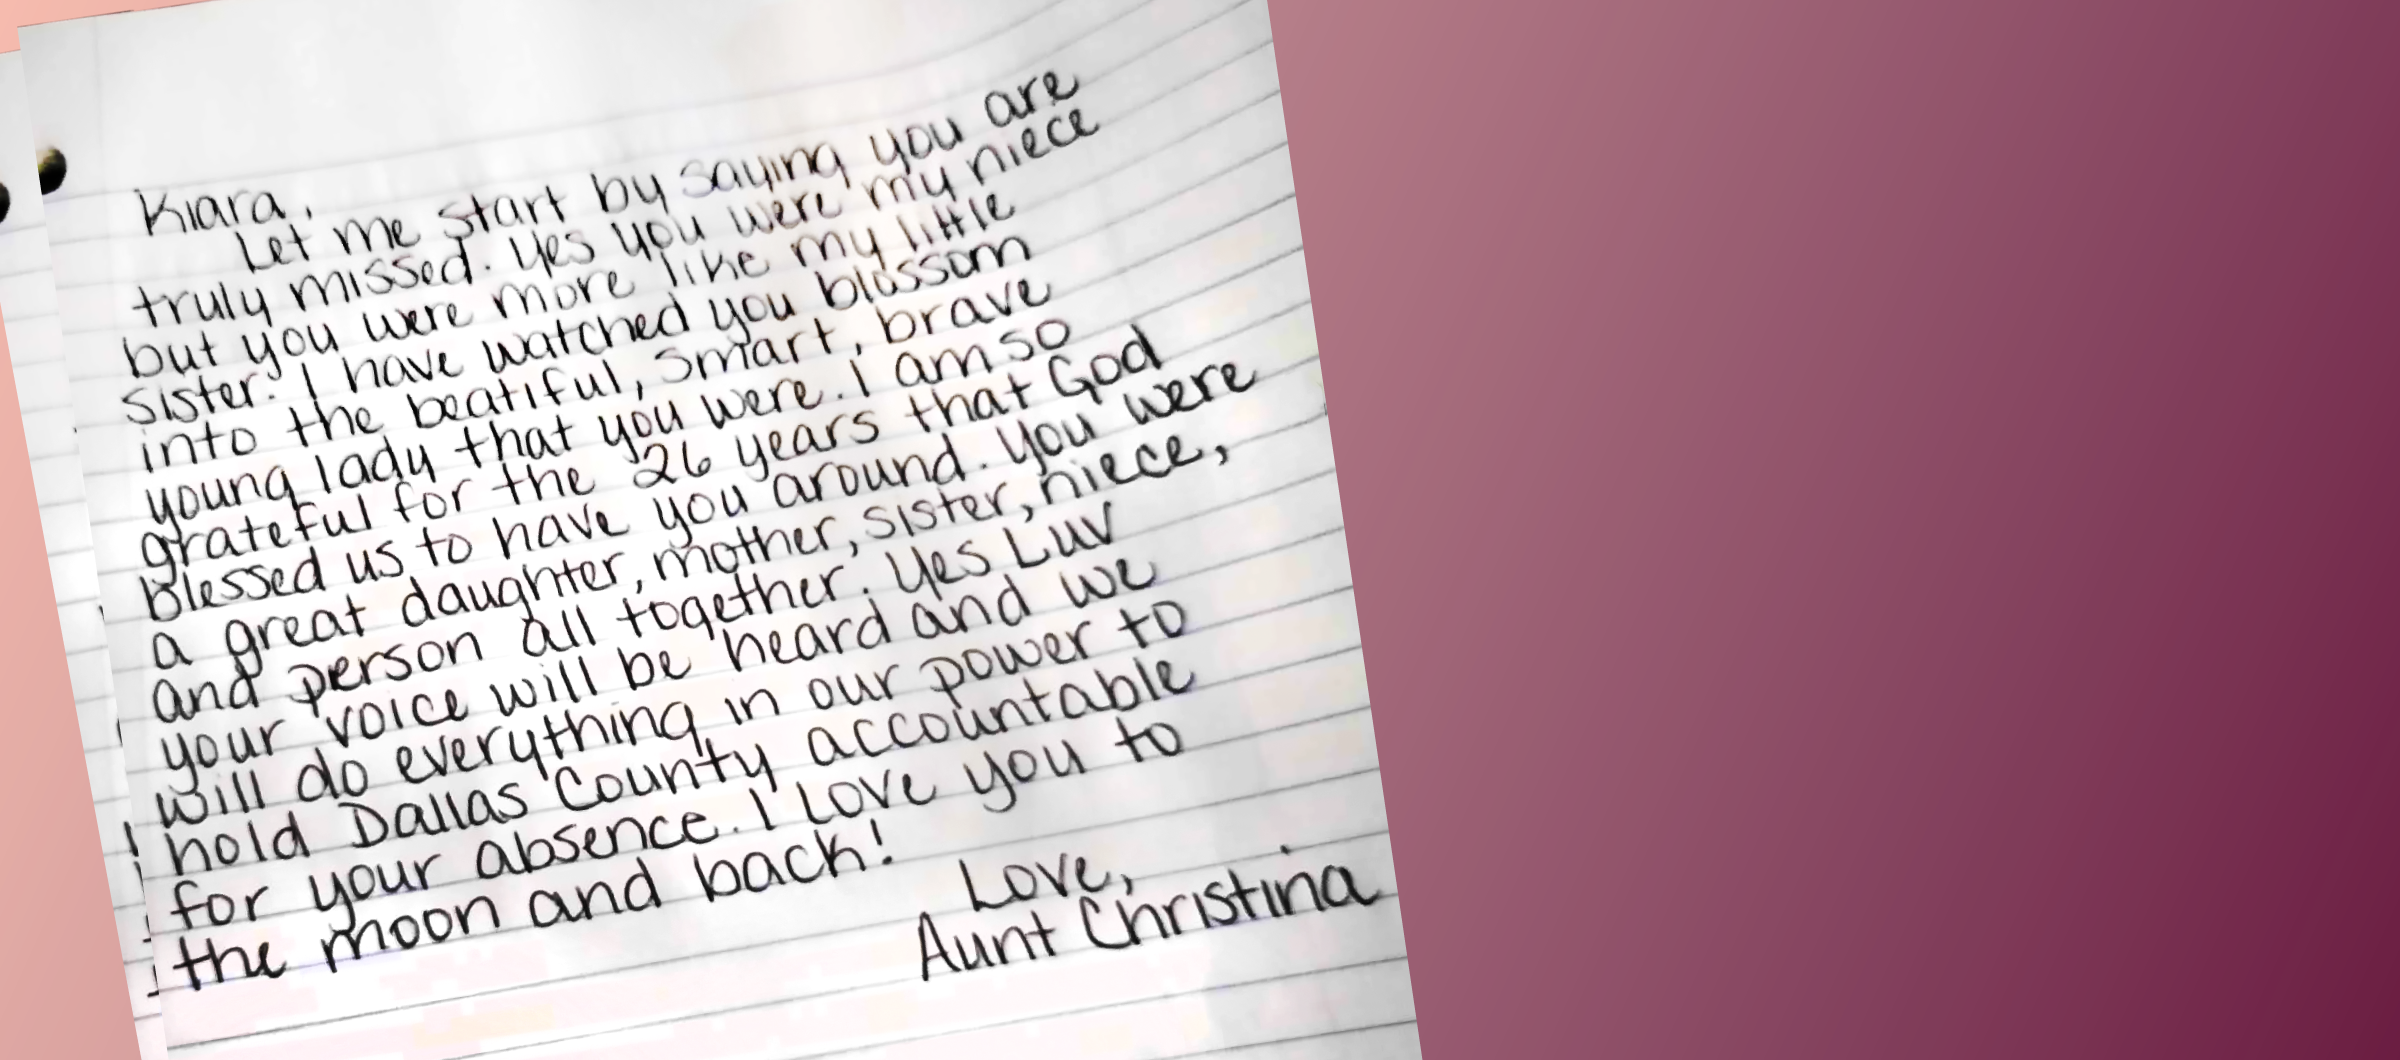 Kiara,
Let me start by saying you are
truly missed. Yes you were my niece
but you were more like my little
sister. I have watched you blossom
into the beatiful, smart, brave
young lady that you were. I am so
grateful for the 26 years that God
blessed us to have you around. You were
a great daughter, mother, sister, niece,
and person all together. Yes Luv
your voice will be heard and we
will do everything in our power to
hold Dallas County accountable
for your absence. I love you to
the moon and back!
Love,
Aunt Christina